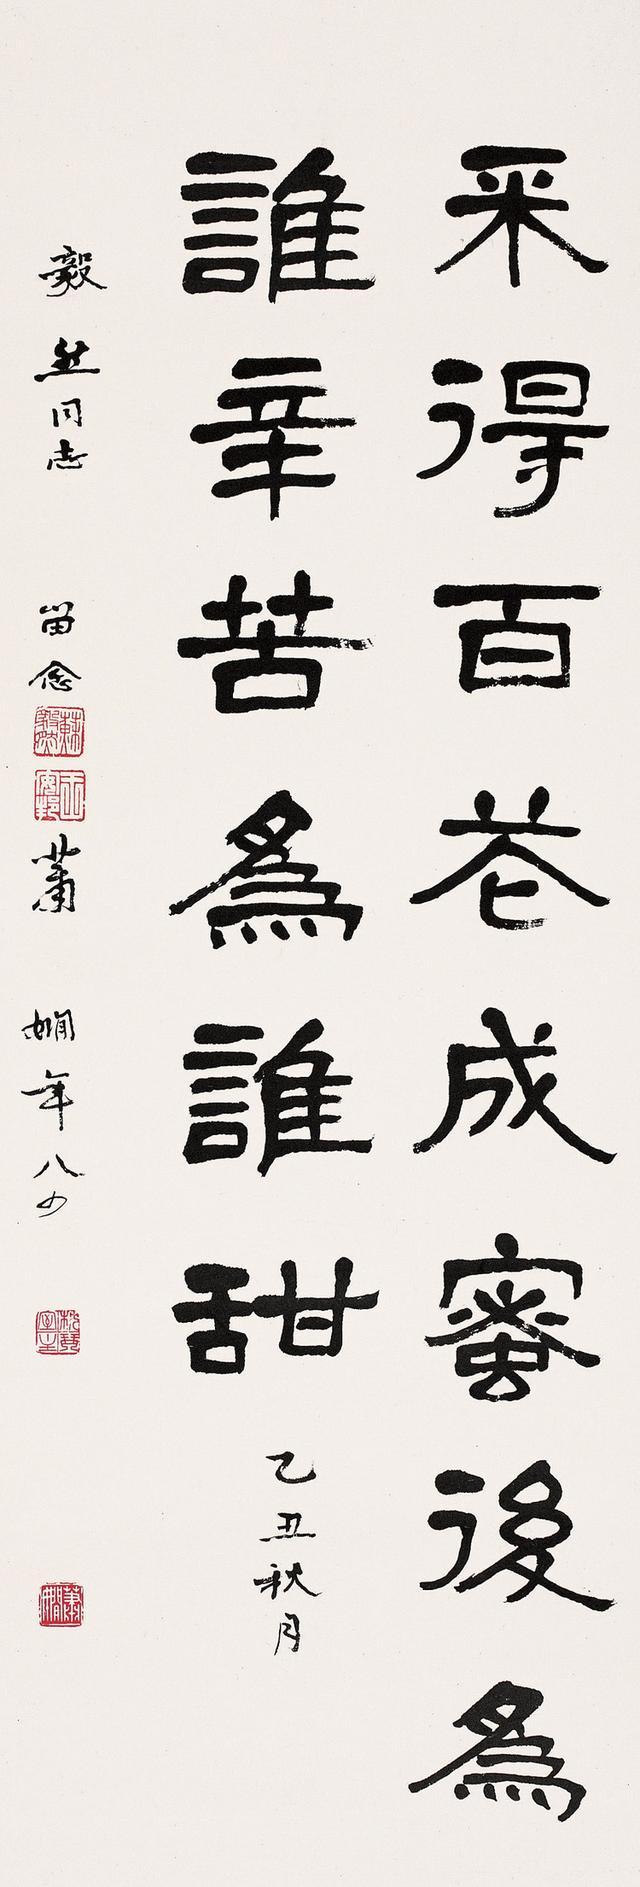 采得百花成蜜後為
誰辛苦為誰甜
乙丑秋月
毅然同志 留念 蕭嫻年八少